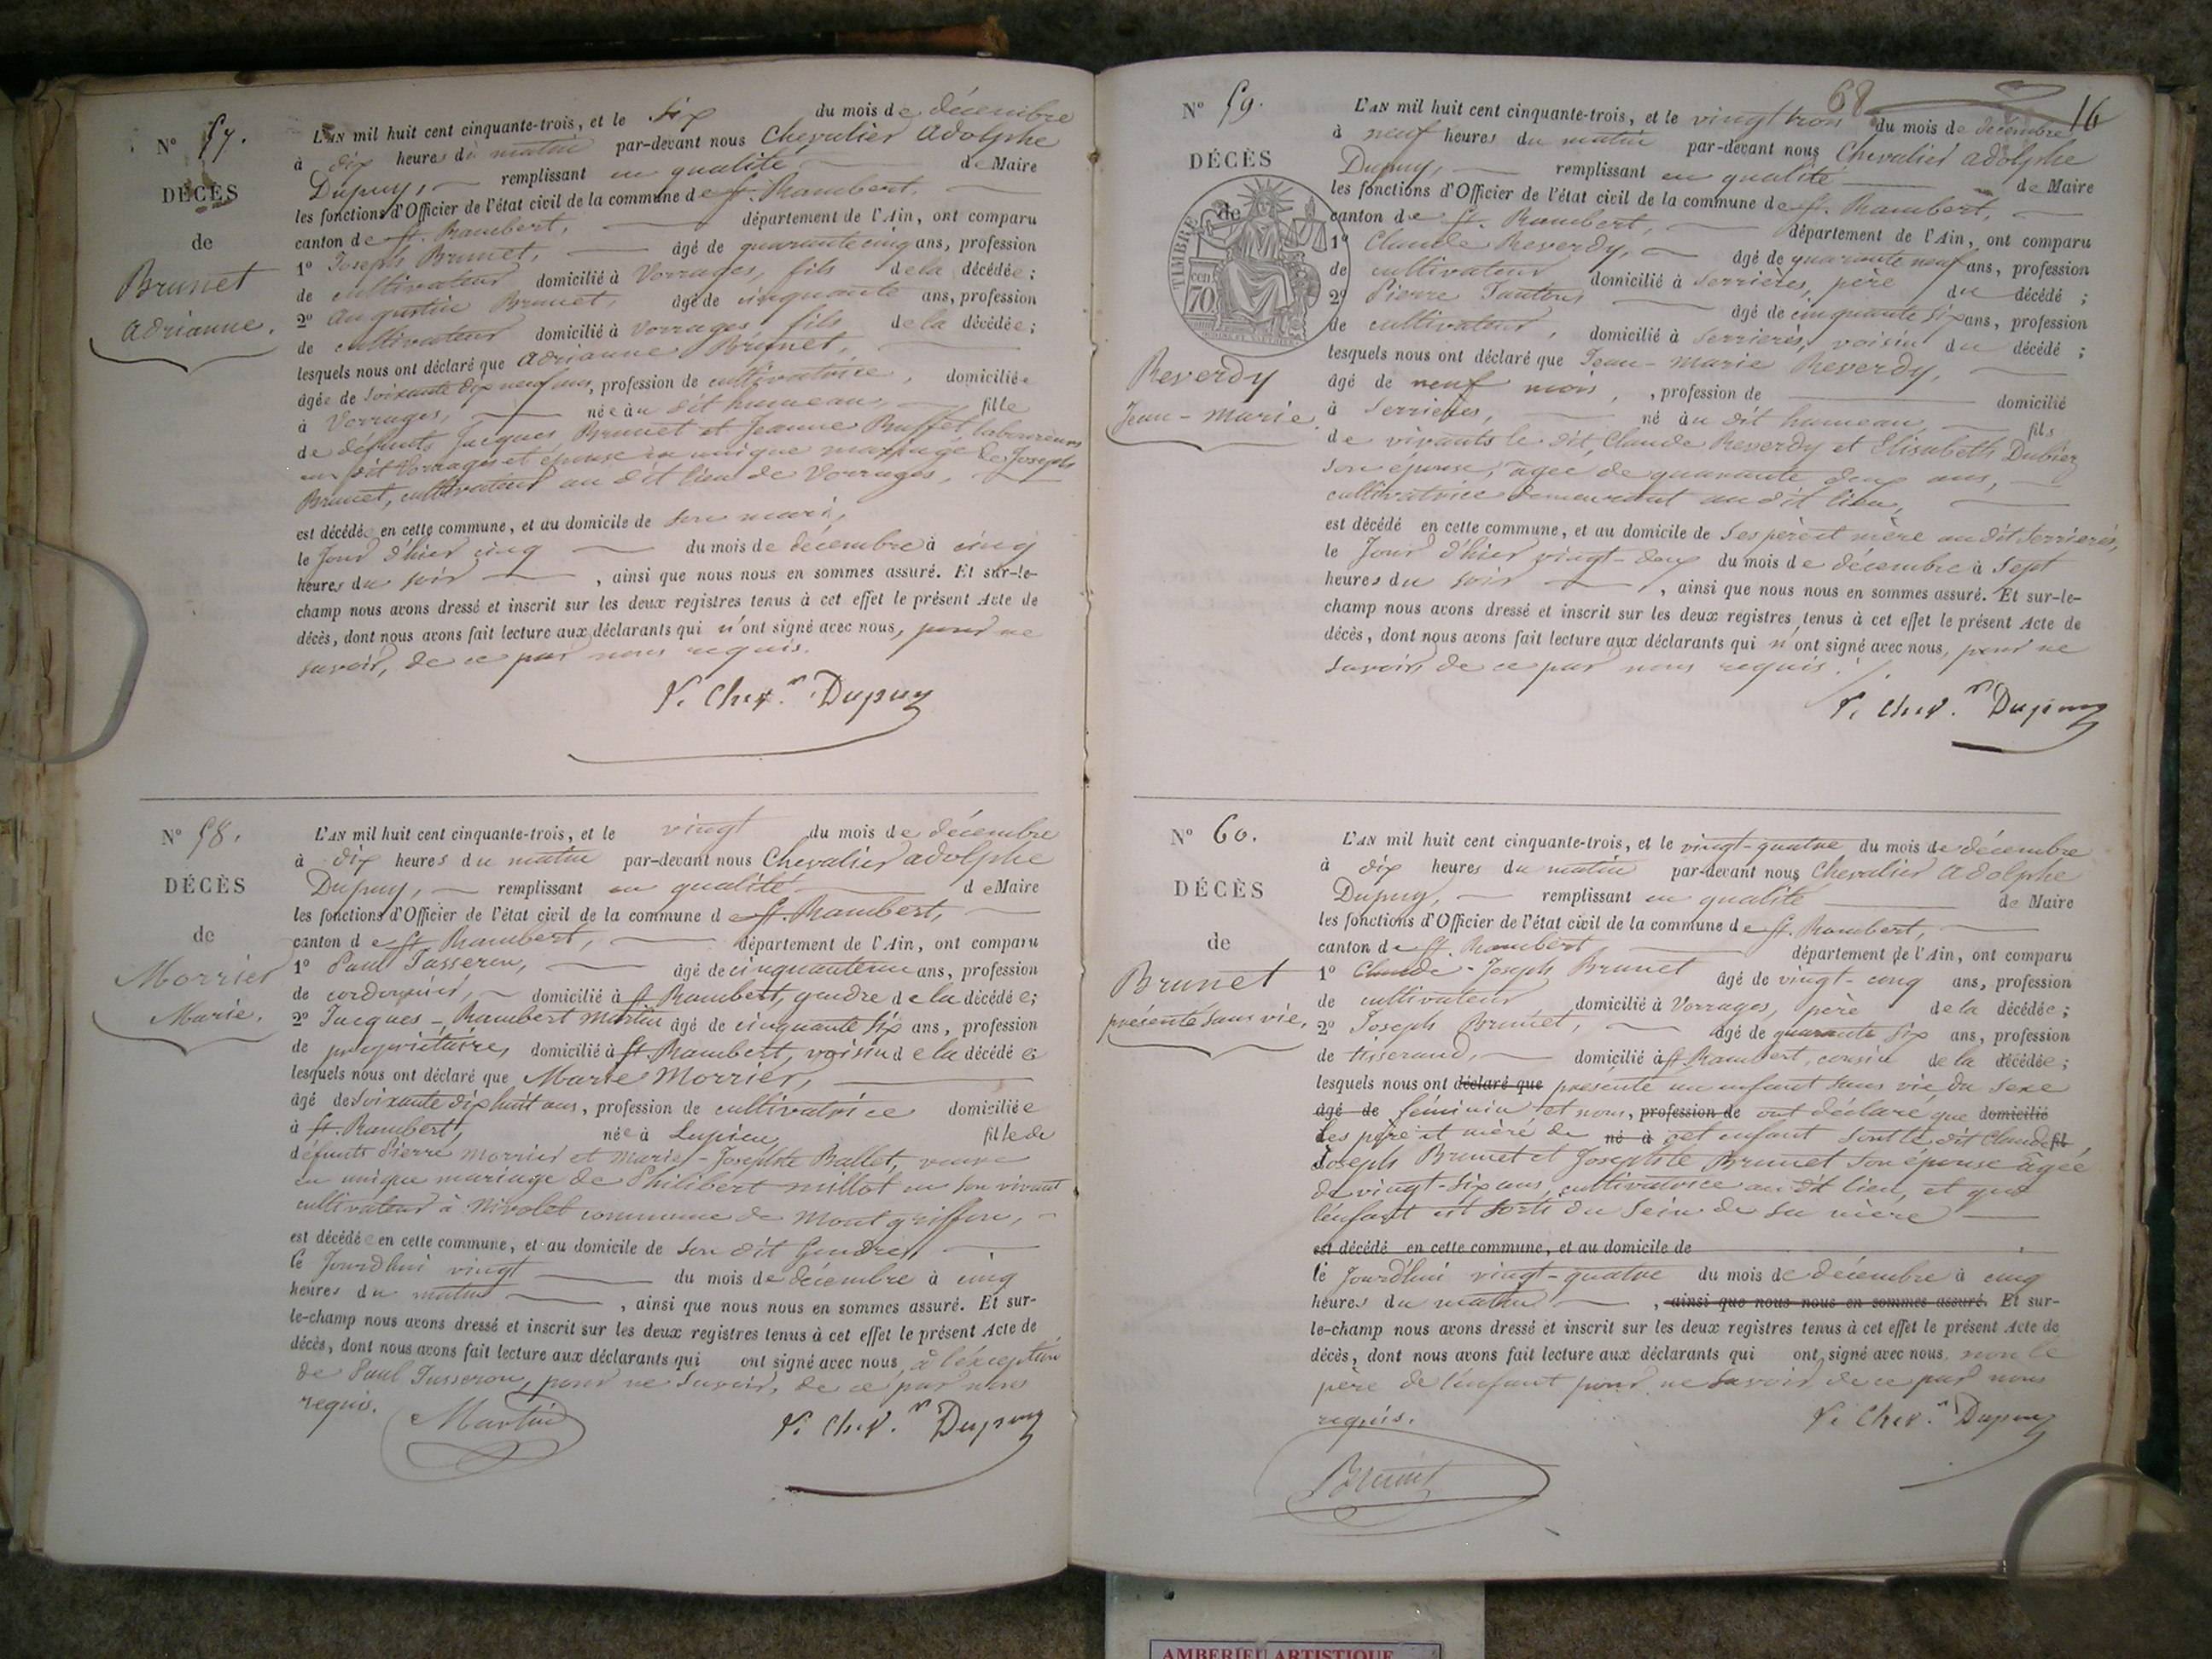 N° 57.
DÉCÈS
de
Brunet
Adrianne.
L'AN mil huit cent cinquante-trois, et le six du mois de décembre
à dix heures du matin par-devant nous Chevalier Adolphe
Dupuy, remplissant en qualité de Maire
les fonctions d'Officier de l'état civil de la commune de St. Rambert,
canton de St. Rambert, département de l'Ain, ont comparu
1° Joseph Brunet, âgé de quarante cinq ans, profession
de cultivateur domicilié à Vorrages, fils de la décédée;
2° Augustin Brunet, âgé de cinquante ans, profession
de cultivateur domicilié à Vorrages, fils de la décédée;
lesquels nous ont déclaré que Adrianne Brunet,
âgée de soixante dix neuf ans, profession de cultivatrice, domiciliée
à Vorrages, née au dit hameau, fille
de défunts Jacques Brunet et Jeanne Buffet, laboureurs
au dit Vorrages et épouse en unique mariage de Joseph
Brunet, cultivateur au dit lieu de Vorrages,
est décédée en cette commune, et au domicile de son mari,
le Jour d'hier cinq du mois de décembre à cinq
heures du soir, ainsi que nous nous en sommes assuré. Et sur-le-
champ nous avons dressé et inscrit sur les deux registres tenus à cet effet le présent Acte de
décès, dont nous avons fait lecture aux déclarants qui n'ont signé avec nous, pour ne
savoir, de ce par nous requis.
V. Chev.r Dupuy
N° 58.
DÉCÈS
de
Morrier
Marie.
L'AN mil huit cent cinquante-trois, et le vingt du mois de décembre
à dix heures du matin par-devant nous Chevalier Adolphe
Dupuy, remplissant en qualité de Maire
les fonctions d'Officier de l'état civil de la commune de St. Rambert,
canton de St. Rambert, département de l'Ain, ont comparu
1° Paul Tasseron, âgé de cinquante un ans, profession
de cordonnier, domicilié à St Rambert, gendre de la décédée;
2° Jacques-Rambert Martin âgé de cinquante six ans, profession
de propriétaire, domicilié à St. Rambert, voisin de la décédée
lesquels nous ont déclaré que Marie Morrier,
âgé de soixante dix huit ans, profession de cultivatrice domiciliée
à St. Rambert, née à Lupieu, fille de
défunts Pierre Morrier et Marie-Josephte Ballet, veuve
en unique mariage de Philibert Millot en son vivant
cultivateur à Nivolet commune de Montgriffon,
est décédée en cette commune, et au domicile de son dit Gendre,
le Jourdhui vingt du mois de décembre à cinq
heures du matin, ainsi que nous nous en sommes assuré. Et sur-
le-champ nous avons dressé et inscrit sur les deux registres tenus à cet effet le présent Acte de
décès, dont nous avons fait lecture aux déclarants qui ont signé avec nous, à l'exception
de Paul Tasseron, pour ne savoir, de ce par nous
requis.
Martin
V. Chev.r Dupuy
68
16
N° 59.
DÉCÈS
de
TIMBRE
70
Reverdy
Jean-Marie.
L'AN mil huit cent cinquante-trois, et le vingt trois du mois de décembre
à neuf heures du matin par-devant nous Chevalier Adolphe
Dupuy, remplissant en qualité de Maire
les fonctions d'Officier de l'état civil de la commune de St. Rambert,
canton de St. Rambert, département de l'Ain, ont comparu
1° Claude Reverdy, âgé de quarante neuf ans, profession
de cultivateur domicilié à Serrières, père du décédé;
2° Pierre âgé de cinquante six ans, profession
de cultivateur, domicilié à Serrières, voisin du décédé;
lesquels nous ont déclaré que Jean-Marie Reverdy,
âgé de neuf mois, , profession de domicilié
à Serrières, né au dit hameau, fils
de vivants le dit Claude Reverdy et Elisabeth Dubiez
son épouse, agée de quarante deux ans,
cultivatrice demeurant au dit lieu,
est décédé en cette commune, et au domicile de ses père et mère au dit Serrières,
le Jour d'hier vingt-deux du mois de décembre à Sept
heures du soir, ainsi que nous nous en sommes assuré. Et sur-le-
champ nous avons dressé et inscrit sur les deux registres tenus à cet effet le présent Acte de
décès, dont nous avons fait lecture aux déclarants qui n'ont signé avec nous, pour ne
savoir, de ce par nous requis.
V. Chev.r Dupuy
N° 60.
DÉCÈS
de
Brunet
présenté sans vie.
L'AN mil huit cent cinquante-trois, et le vingt-quatre du mois de décembre
à dix heures du matin par-devant nous Chevalier Adolphe
Dupuy, remplissant en qualité de Maire
les fonctions d'Officier de l'état civil de la commune de St. Rambert,
canton de St. Rambert département de l'Ain, ont comparu
1° Claude-Joseph Brunet âgé de vingt-cinq ans, profession
de cultivateur domicilié à Vorrages, père de la décédée;
2° Joseph Brunet, âgé de quarante six ans, profession
de tisserand, domicilié à St. Rambert, cousin de la décédée;
lesquels nous ont déclaré que présenté un enfant sans vie, du sexe
âgé de féminin et nous, profession de ont déclaré que domicilié
Les père et mère de né à cet enfant sont le dit Claude fils
Joseph Brunet et Josephte Brunet son épouse âgée
de vingt-six ans, cultivatrice au dit lieu, et que
l'enfant est sorti du sein de sa mère
est décédé en cette commune, et au domicile de
le Jourd'hui vingt-quatre du mois de décembre à cinq
heures du matin, ainsi que nous nous en sommes assuré. Et sur-
le-champ nous avons dressé et inscrit sur les deux registres tenus à cet effet le présent Acte de
décès, dont nous avons fait lecture aux déclarants qui ont signé avec nous, non le
père de l'enfant pour ne savoir de ce par nous
requis.
V. Chev.r Dupuy
Brunet
AMBERIEU ARTISTIQUE